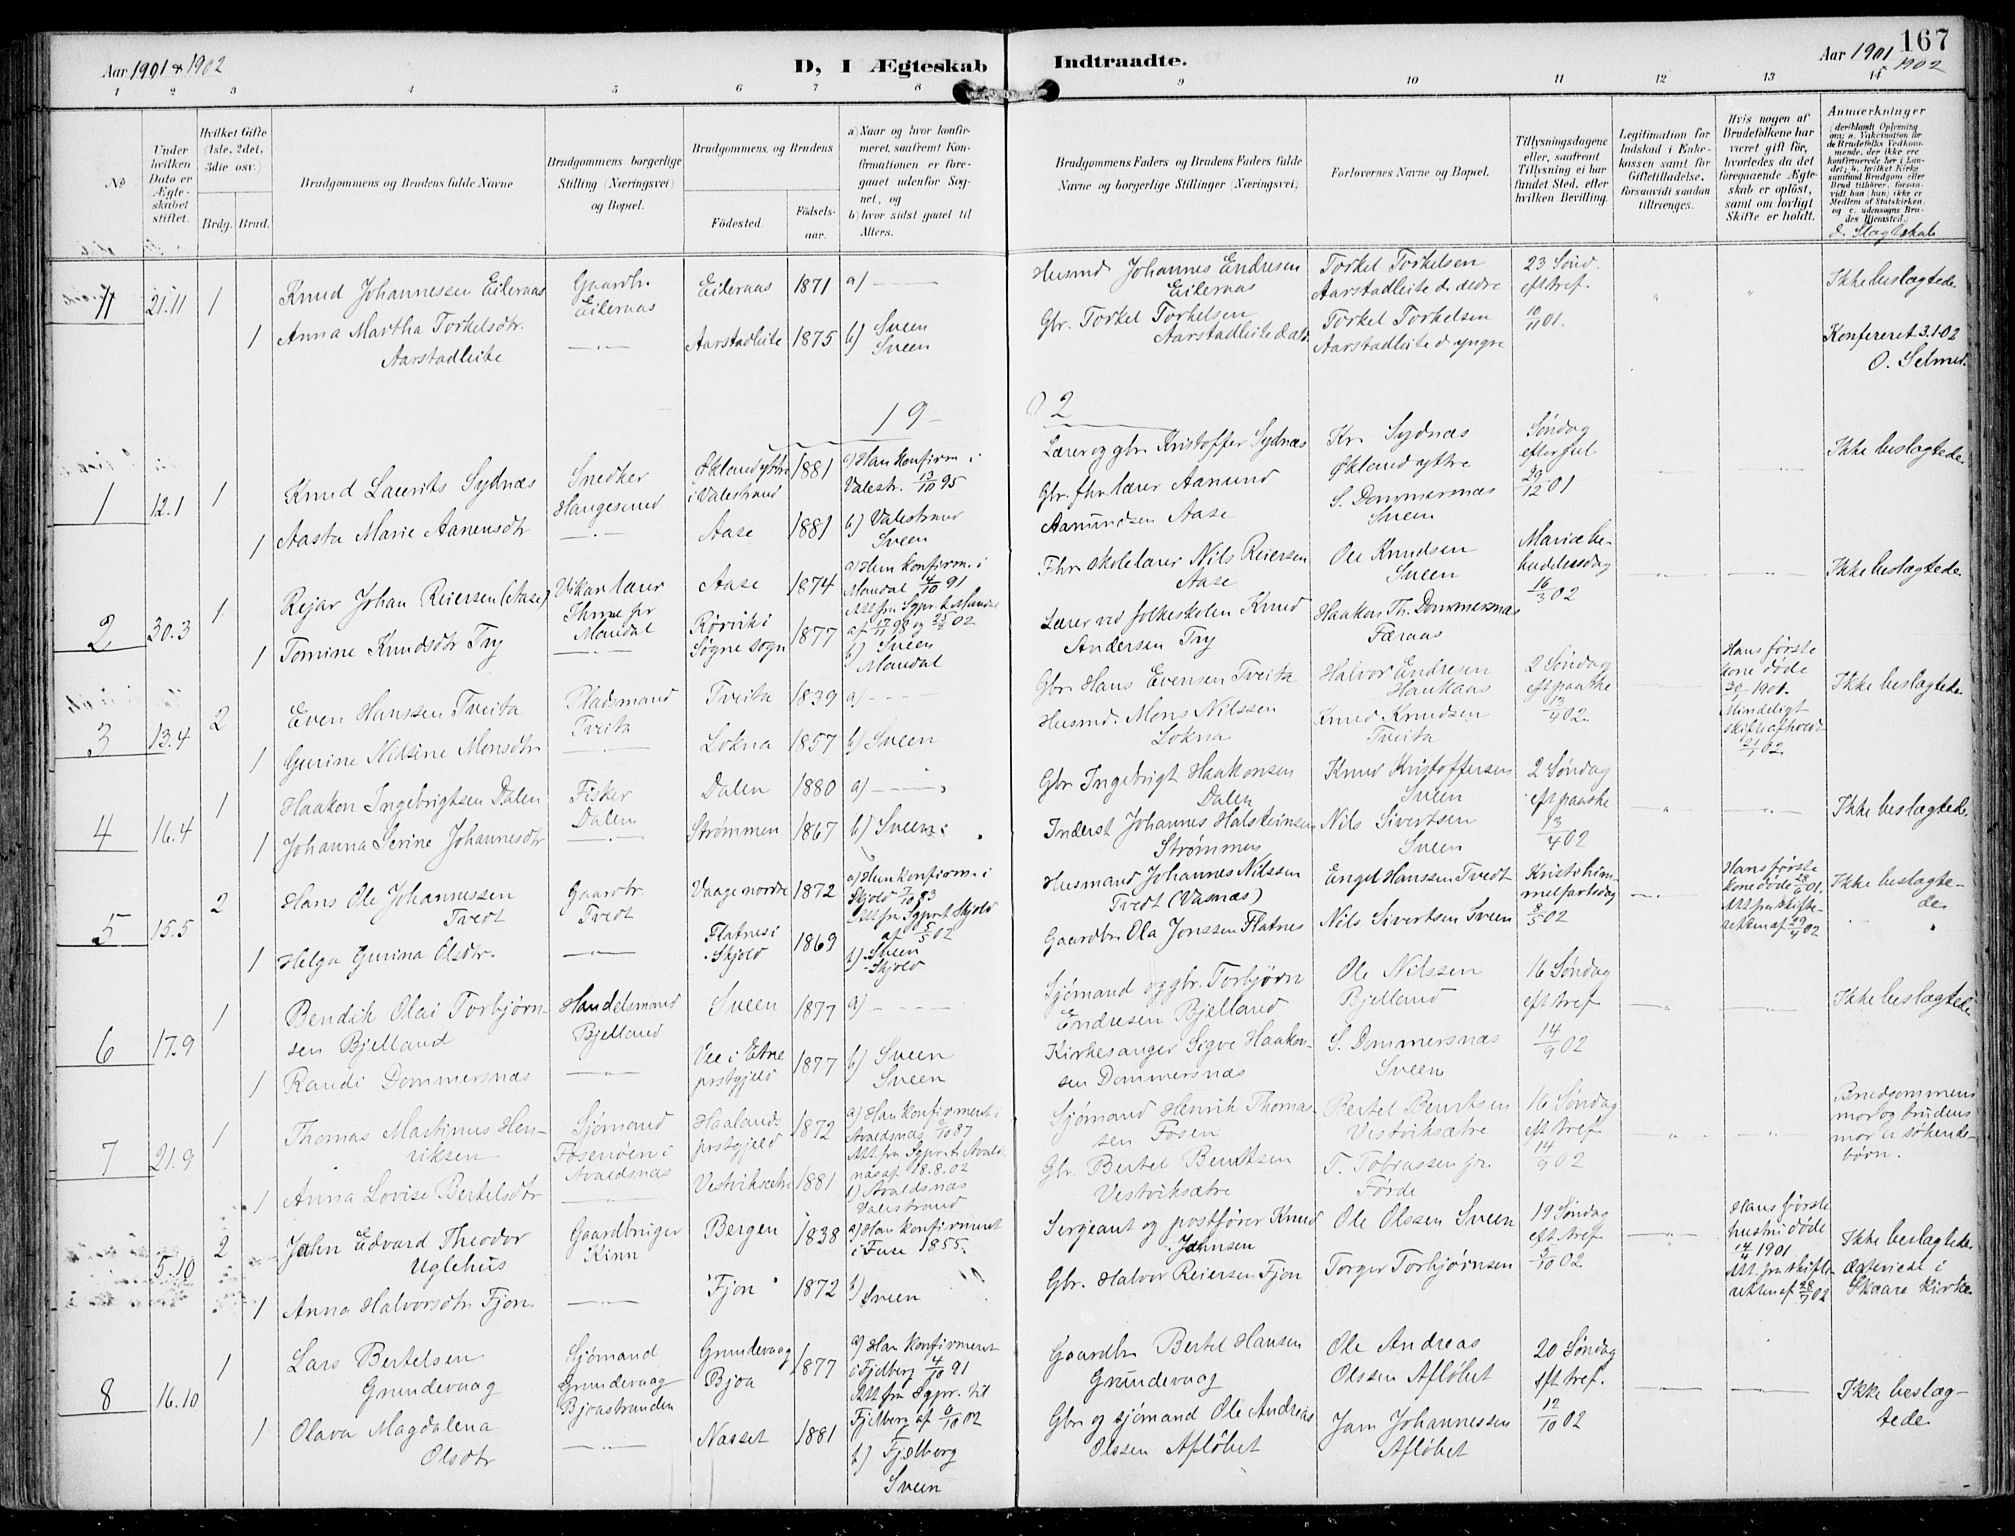 Aar 1901 & 1902
D, I Ægteskab Indtraadte.
Aar 1901 & 1902
167
1 2 3 4 5 6 7 8 9 10 11 12 13 14
No
Under hvilken Dato er Ægteskabet stiftet.
Hvilket Gifte (1ste, 2det, 3die osv.)
Brdg. Brud.
Brudgommens og Brudens fulde Navne
Brudgommens borgerlige Stilling (Næringsvei) og Bopæl.
Brudgommens og Brudens
Fødested.
Fødselsaar.
a) Naar og hvor konfirmeret, saafremt Konfirmationen er foregaaet udenfor Sognet, og
b) hvor sidst gaaet til Alters.
Brudgommens Faders og Brudens Faders fulde Navne og borgerlige Stillinger (Næringsvei)
Forlovernes Navne og Bopæl.
Tillysningsdagene eller, saafremt Tillysning ei har fundet Sted, efter hvilken Bevilling.
Legitimation for Indskud i Enkekassen samt for Giftetilladelse, forsaavidt saadan tiltrænges.
Hvis nogen af Brudefolkene har været gift før, hvorledes da det foregaaende Ægteskab er opløst, samt om lovligt Skifte er holdt.
Anmærkninger
d. Slægtskab
11 21.11 1
Knud Johannessen Eileraas
Gaardbr. Eileraas
Eileraas 1871 a) —
Husmd Johannes Endresen Eileraas
Torkel Torkelsen Aarstadleite d. ældre
23 Sønd. eft tref. 10/11 01.
Ikke beslægtede
1 Anna Martha Torkelsdtr. Aarstadleite
Aarstadleite 1875 b) Sveen Sveen
Gbr. Torkel Torkelsen Aarstadleite d. ald.
Torkel Torkelsen Aarstadleite d. yngre
Konfereret 3.1.02
O. Selmer.
19 02
1 12.1 1
Knud Laurits Sydnæs
Snedker Haugesund
Økland ytre i Valestrand 1881
a) Han konfirm. i Valestr. 13/10 95
Lærer og gbr. Kristoffer Sydnæs
Kr. Sydnæs Økland yttre
Søndag efter jul 29/12 01
Ikke beslægtede
1 Aasta Marie Aanensdtr
Aase 1881
b) Valestrand Sveen
Gbr. fhr. lærer Aamund Aamundsen Aase
S. Dommersnæs Sveen
2 30.3 1
Rejar Johan Reiersen (Aase)
Vikarlærer
Mandal
Aase 1874
Mandal 4/10 91
Fhr. skolelærer Nils Reiersen Aase
Ole Knudsen Sveen
Mariæ bebudelsesdag 16/3 02
Ikke beslægtede
1 Tomine Knudsdtr Try
Rørvik i Søgne sogn 1877
b) Sveen Mandal
Lærer ved folkeskolen Knud Andersen Try
Haakon Th. Dommersnæs Færaas
3 13.4 2
Even Hanssen Tveita
Pladsmand Tveita
Tveita 1839 a) —
Gbr. Hans Evensen Tveita
Halvor Endresen Haukaas
2 Søndag eft paaske 13/4 02.
Hans første kone døde 30/ 1901. Mindeligt skifte afholdt 21/1 02
Ikke beslægtede
1 Gurine Nilsine Monsdtr
Lokna 1857 b) Sveen
Husmd. Mons Nilssen Lokna
Knud Knudsen Tveita
4 16.4 1
Haakon Ingebrigtsen Dalen
Fisker Dalen
Dalen 1880 a) —
Gbr. Ingebrigt Haakonsen Dalen
Knud Kristoffersen Sveen
2 Søndag eft paaske 13/4 02
Ikke beslægtede.
1 Johanna Serine Johannesdtr
Strømmen 1867 b) Sveen
Inderst Johannes Halsteinsen Strømmen
Nils Sivertsen Sveen
5 15.5 2
Hans Ole Johannessen Tvedt
Gaardbr. Tvedt
Vaage nordre 1872
a) Hun konfirm. i Skjold 7/10 83
Att fra Sgpr. t Skjold af 5/5 02
Husmand Johannes Nilssen Tvedt (Vasnæs)
Engel Hanssen Tvedt
Kristi himmelfartsdag 8/5 02
Hans første kone døde 28/6 01. Att fra skifteretten af 29/4 02
Ikke beslægtede
1 Helga Gurina Olsdtr.
Flatnes i Skjold 1869
b) Sveen Skjold
Gaardbr. Ola Jonssen Flatnes
Nils Sivertsen Sveen
6 17.9 1
Bendik Olai Torbjørnsen Bjelland
Handelsmand Bjelland
Sveen 1877 a) —
Sjømand og gbr. Torbjørn Endresen Bjelland
Ole Nilssen Bjelland
16 Søndag eft tref 14/9 02
Ikke beslægtede
1 Randi Dommersnæs
Vee i Etne prstgjeld 1877
b) Sveen Sveen
Kirkesanger Sigve Haakonsen Dommersnæs
S. Dommersnæs Sveen
7 21.9 1
Thomas Martinus Henriksen
Sjømand Fosenøen i Avaldsnæs
Haalands prstgjeld 1872
a) Han konfirmert i Avaldsnæs 87
Att fra Sgpr. t. Avaldsnæs af 18.8.02
Sjømand Henrik Thomassen Fosen
Bertel Bentsen Vestviksætre
16 Søndag eft tref. 14/9 02
Brudgommens mor og brudens mor er søskendebørn.
1 Anna Lovise Bertelsdtr
Vestviksætre 1881
b) Avaldsnæs Valestrand
Gbr. Bertel Bentsen Vestviksætre
T. Tobiassen jr. Førde
5.10 2
John Edvard Theodor Uglehus
Gaardbruger Kinn
Bergen 1838
a) Han konfirmeret i Fuse 1855.
Sergeant og postfører Knud Johnsen
Ole Olssen Sveen
19 Søndag eft tref 5/10 02
Hans første hustru døde 14/4 1901 Att fra skifteretten af 28/7 02
Ikke beslægtede Ægteviede i Skaare kirke
1 Anna Halvorsdtr Fjon.
Fjon 1872 b) Sveen
Gbr. Halvor Reiersen Fjon
Torger Torbjørnsen
8 16.10 1
Lars Bertelsen Grundevaag
Sjømand Grundevaag Bjoastranden
Grundevaag Bjoa 1877
a) Han konfirmeret i Fjelberg 4/10 91
Att fra Sgpr. til Fjelberg af 6/10 02
Gaardbr. Bertel Hansen Grundevaag
Ole Andreas Olssen Afløbet
20 Søndag eft tref. 12/10 02
Ikke beslægtede
1 Olava Magdalena Olsdtr
Næsset 1881
b) Fjelberg Sveen
Gbr og sjømand Ole Andreas Olssen Afløbet
Jam Johannessen Afløbet